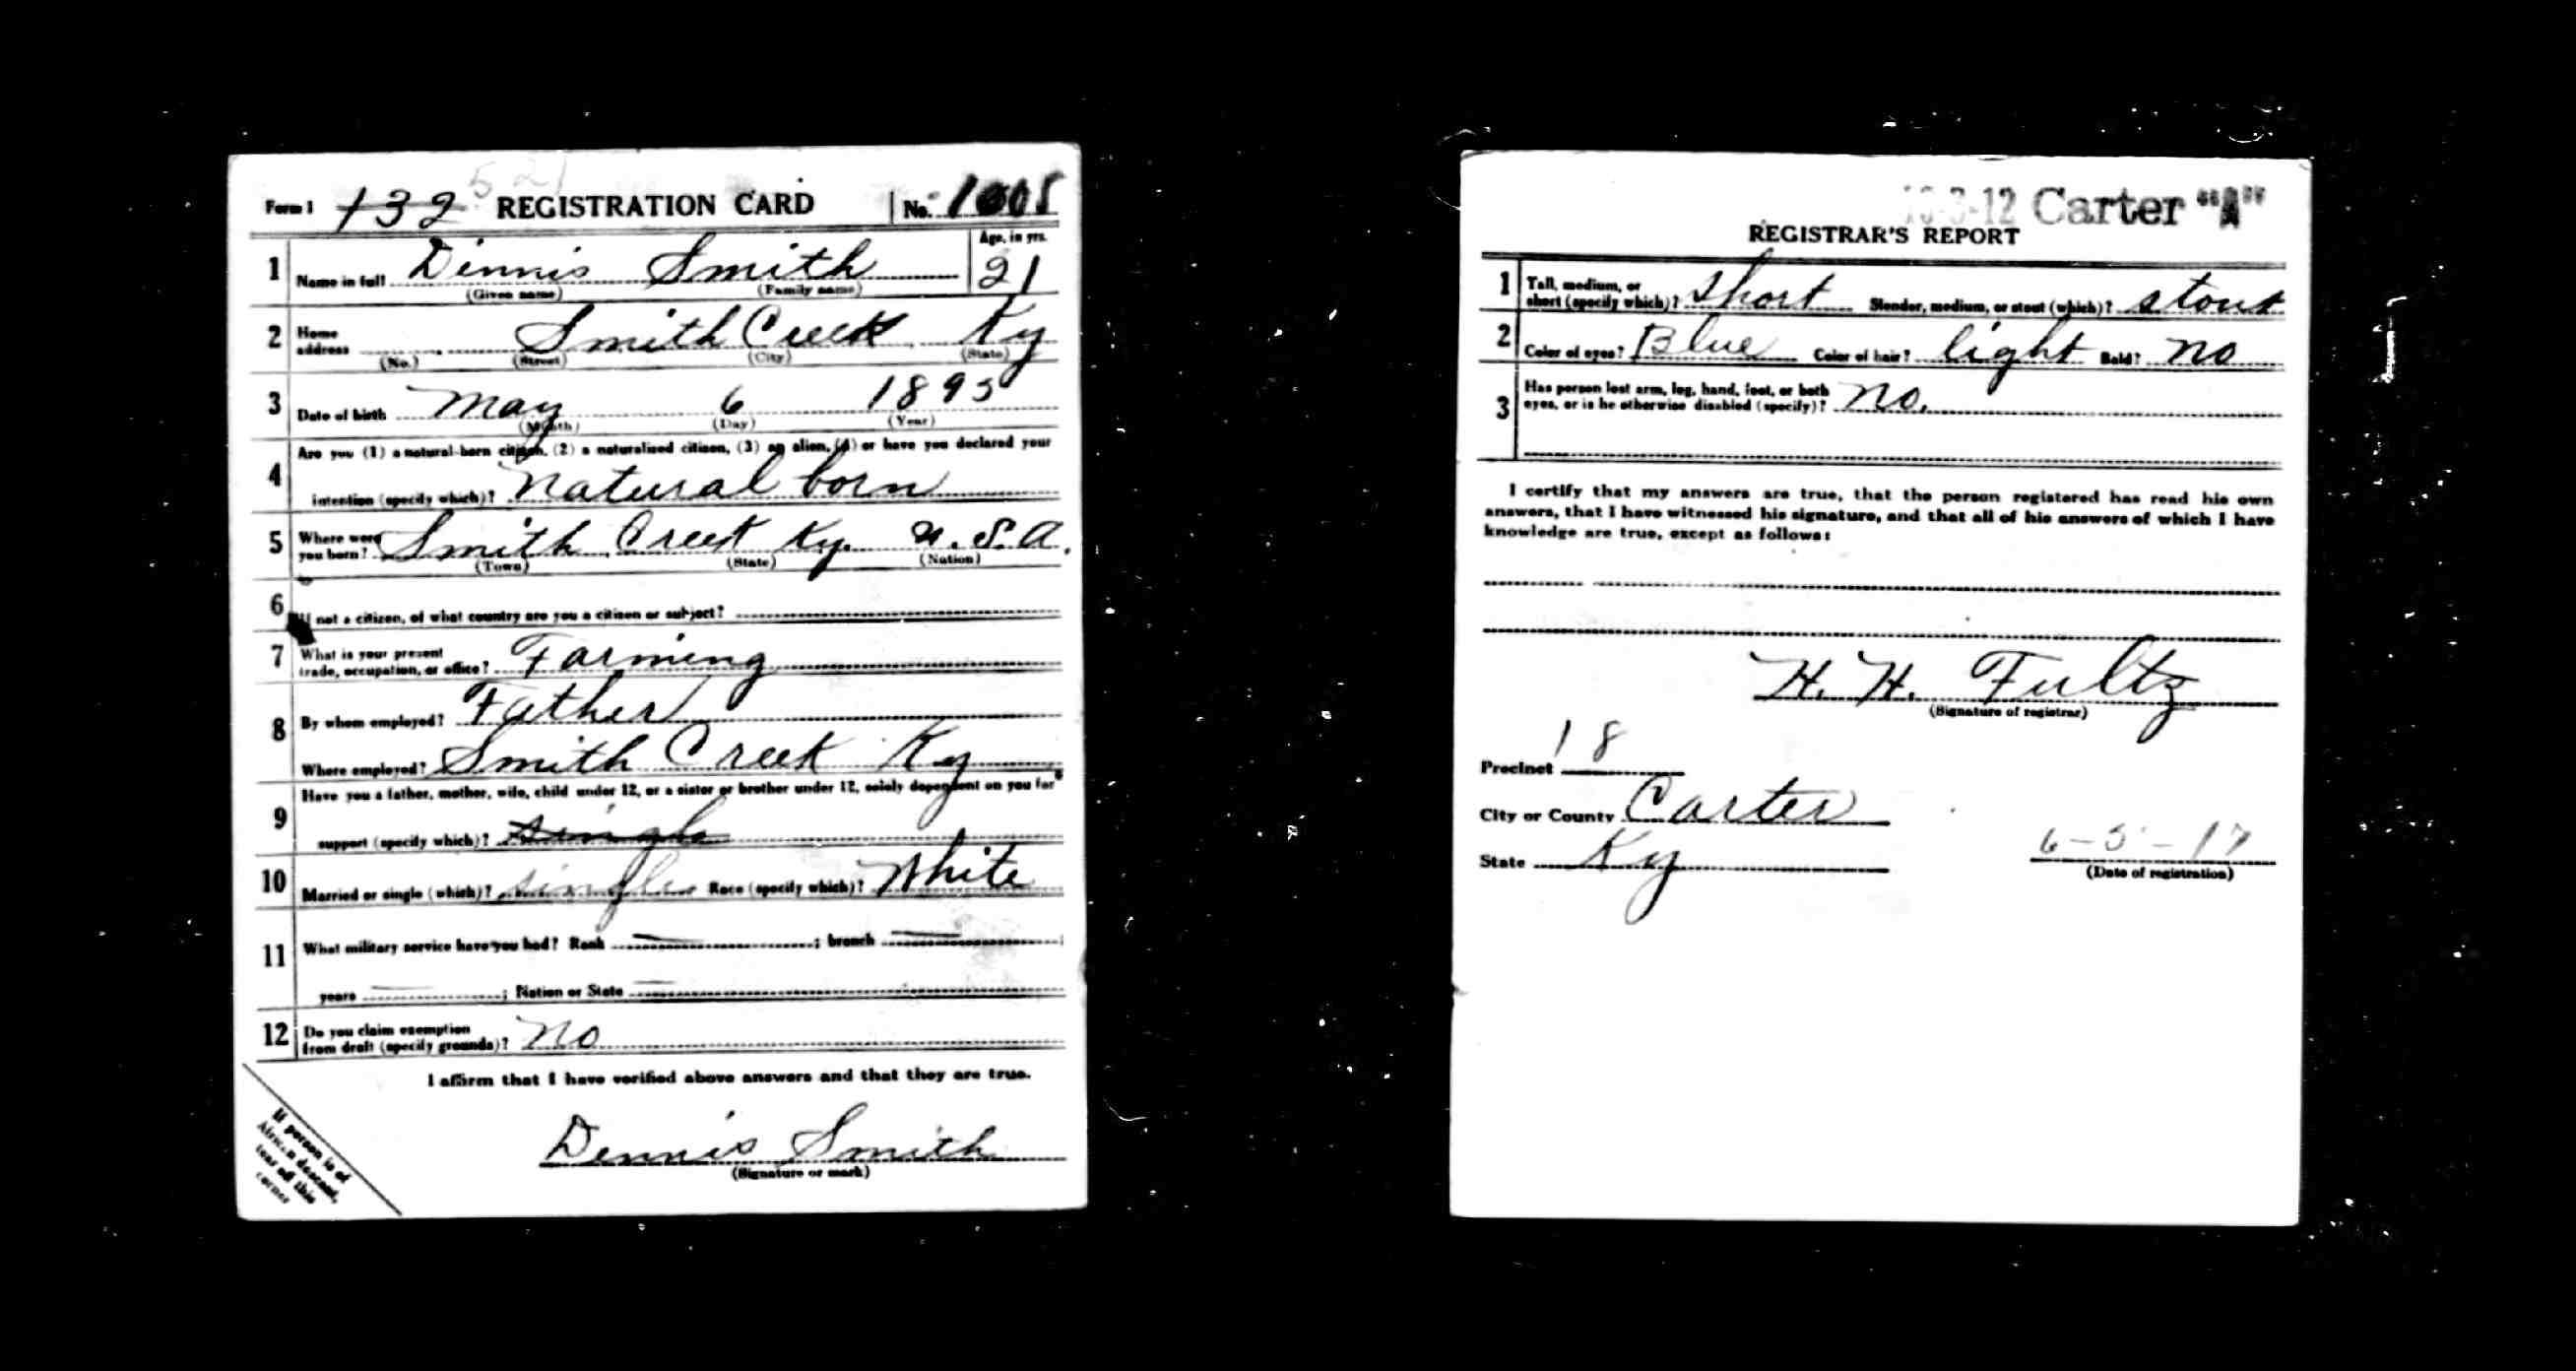 Form 1 132 REGISTRATION CARD No. 1005
1 Name in full Dennis Smith Age, in yrs. 21
(Given name) (Family name)
2 Home address Smith Creek Ky
(No.) (Street) (City) (State)
3 Date of birth May 6 1895
(Month) (Day) (Year)
4 Are you (1) a natural-born citizen, (2) a naturalized citizen, (3) an alien, (4) or have you declared your
intention (specify which)? Natural born
5 Where were you born? Smith Creek Ky. U.S.A.
(Town) (State) (Nation)
6 If not a citizen, of what country are you a citizen or subject?
7 What is your present
trade, occupation, or office? Farming
8 By whom employed? Father
Where employed? Smith Creek Ky
9 Have you a father, mother, wife, child under 12, or a sister or brother under 12, solely dependent on you for
support (specify which)? single
10 Married or single (which)? single Race (specify which)? White
11 What military service have you had? Rank — ; branch —
years — ; Nation or State —
12 Do you claim exemption
from draft (specify grounds)? No
I affirm that I have verified above answers and that they are true.
Dennis Smith
(Signature or mark)
If person is of
African descent,
tear off this
corner
16-3-12 Carter "A"
REGISTRAR'S REPORT
1 Tall, medium, or
short (specify which)? short Slender, medium, or stout (which)? stout
2 Color of eyes? Blue Color of hair? light Bald? no
3 Has person lost arm, leg, hand, foot, or both
eyes, or is he otherwise disabled (specify)? No.
I certify that my answers are true, that the person registered has read his own
answers, that I have witnessed his signature, and that all of his answers of which I have
knowledge are true, except as follows:
H. H. Fultz
(Signature of registrar)
Precinct 18
City or County Carter
State Ky 6-5-17
(Date of registration)